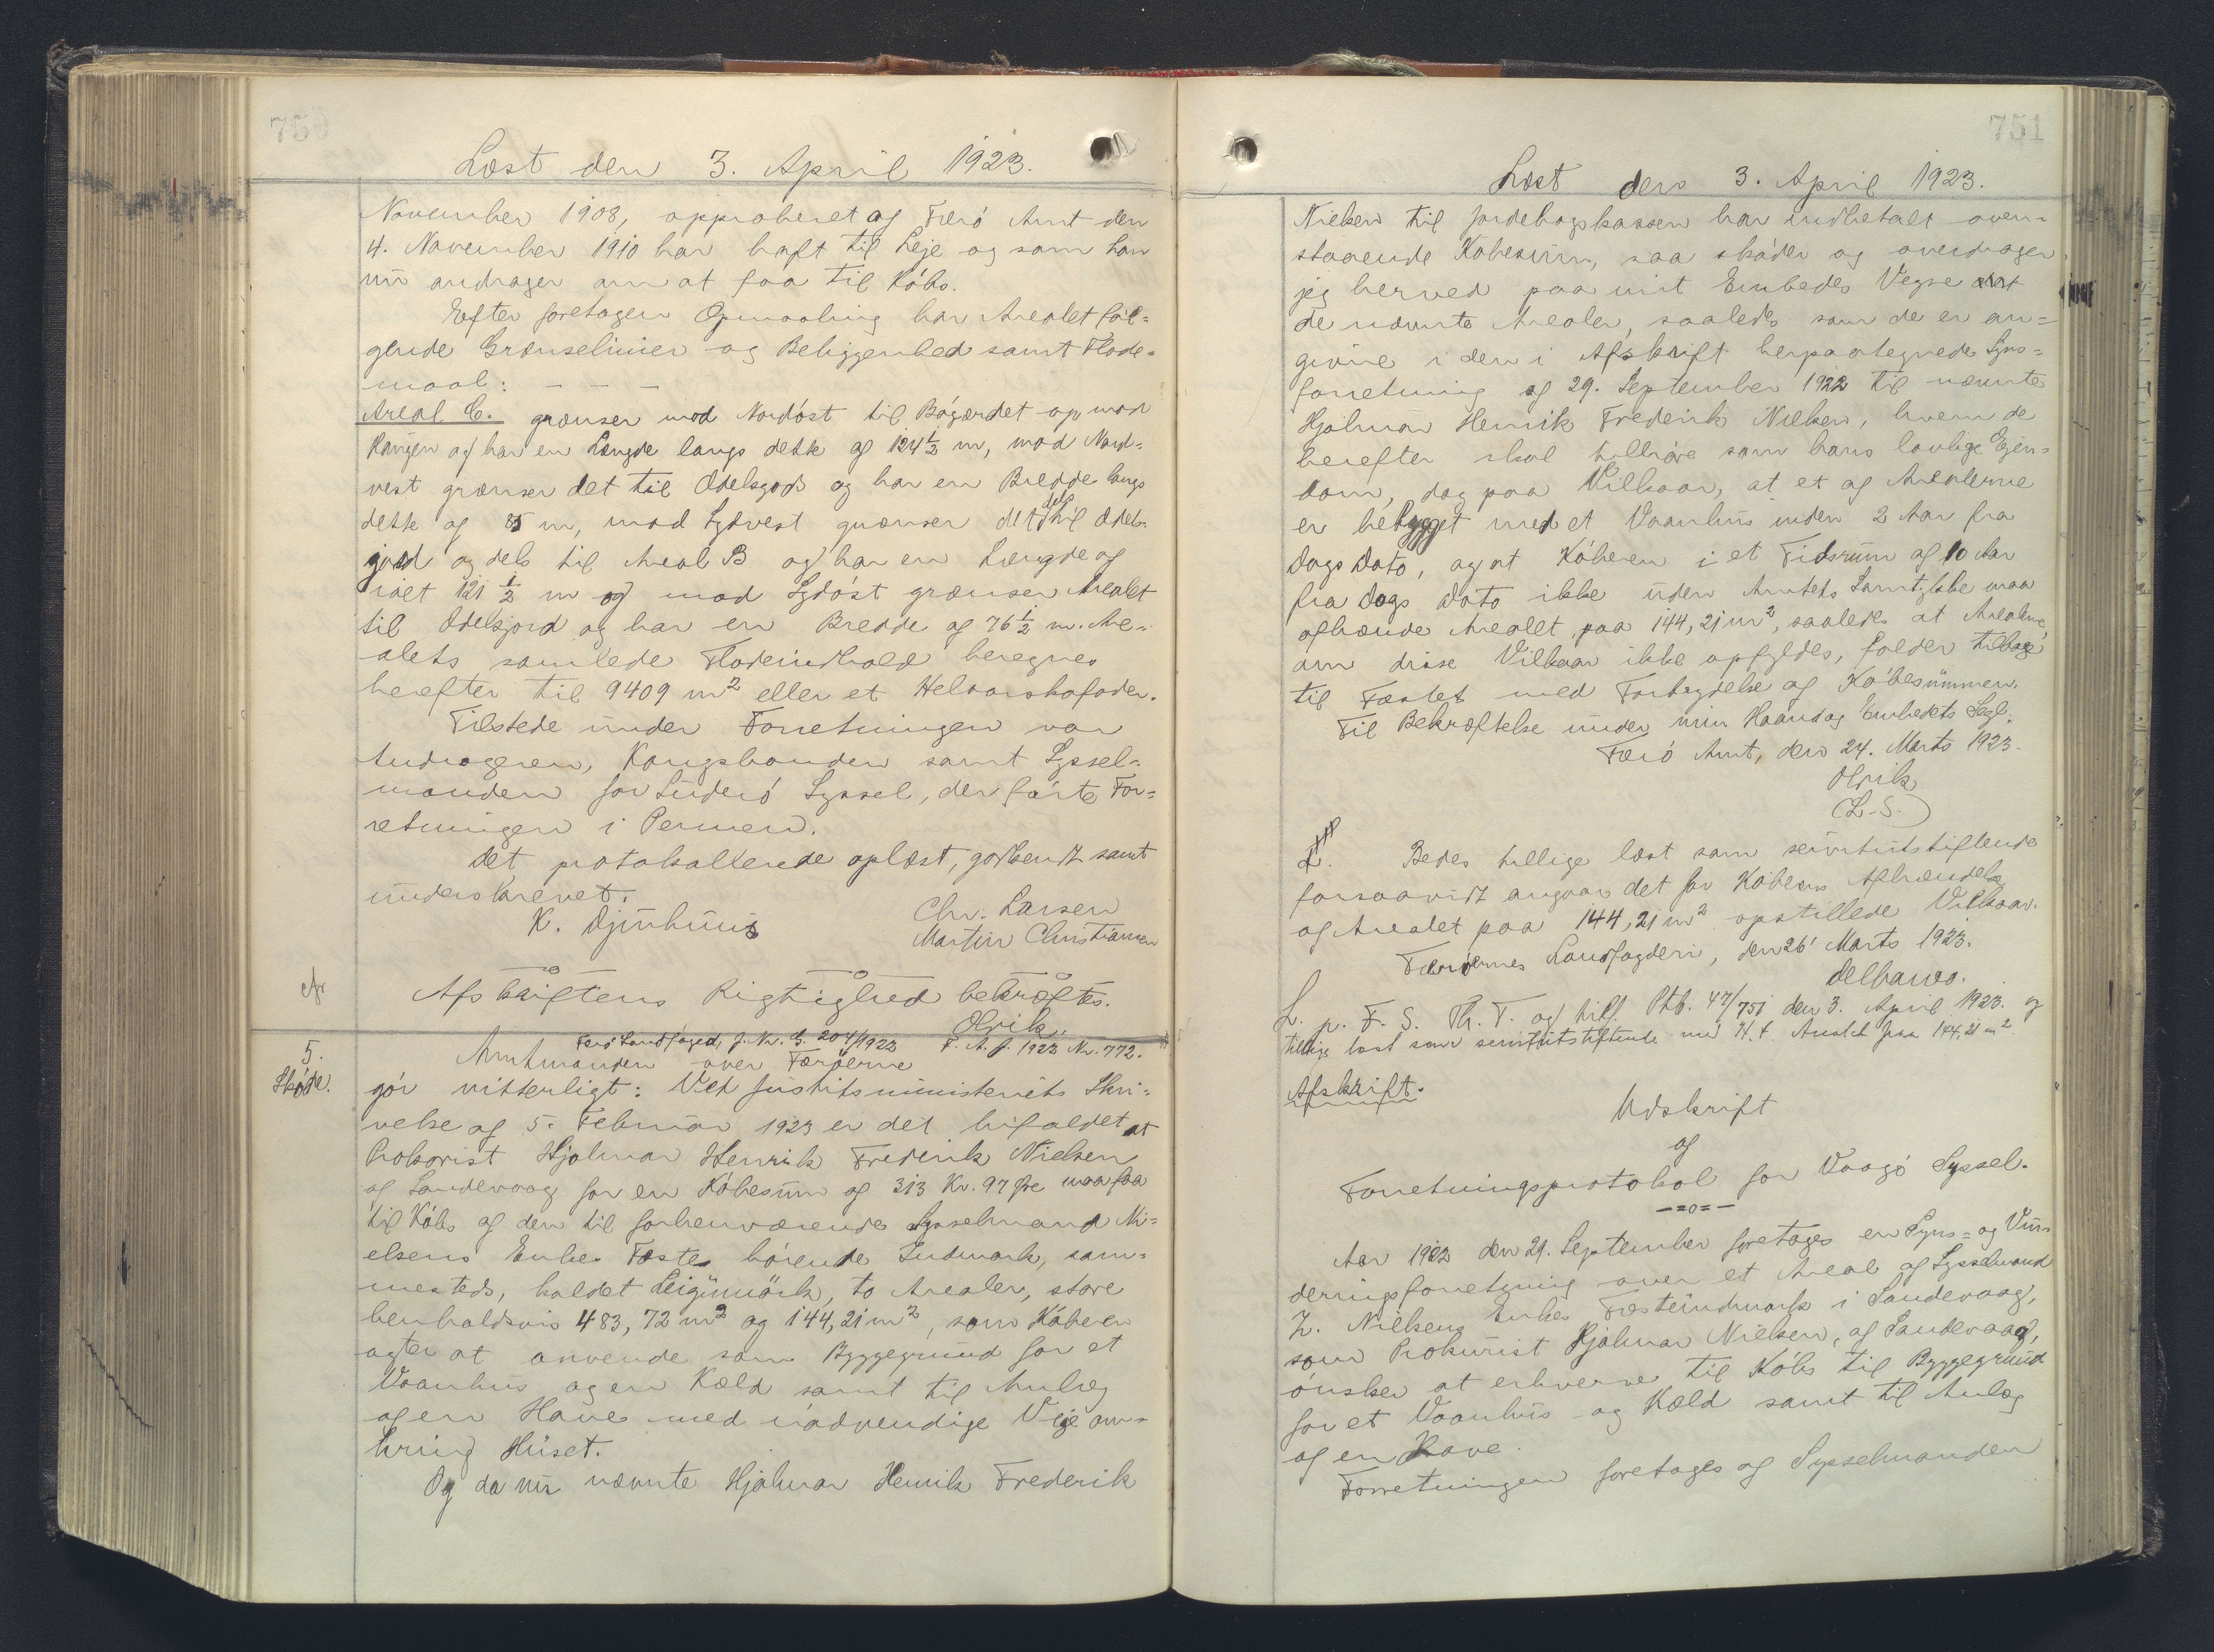 750
Læst den 3. April 1923.
November 1908, approberet af Færø Amt den
4. November 1910 har haft til Leje og som han
nu andrager om at faa til Købs.
Efter foretagen Opmaaling har Arealet føl=
gende Grænselinier og Beliggenhed samt Flade=
maal: – – –
Areal C. grænser mod Nordøst til Bøgærdet op mod
Hangen og har en Længde langs dette af 124½ m, mod Nord=
vest grænser det til Odelsgods og har en Bredde langs
dette af 85 m, mod Sydvest grænser det dels til Odels=
jord og dels til Areal B og har en Længde af
ialt 121½ m og mod Sydøst grænser Arealet
til Odelsjord og har en Bredde af 76½ m. Are=
alets samlede Fladeindhold beregnes
herefter til 9409 m² eller et Helaarskofoder.
Tilstede under Forretningen var
Andrageren, Kongsbonden samt Syssel=
manden for Suderø Syssel, der førte For=
retningen i Pennen.
Det protokollerede oplæst, godkendt samt
underskrevet.
K. Djurhuus
Chr. Larsen
Martin Christiansen
Afskriftens Rigtighed bekræftes.
Olrik.
5.
Skøde.
Færø Landfoged, J. Nr. G. 204/1923 F. A. J. 1923 Nr. 772.
Amtmanden over Færøerne
gør vitterligt: Ved Justitsministeriets Skri=
velse af 5. Februar 1923 er det bifaldet at
Prokurist Hjalmar Henrik Frederik Nielsen
af Sandevaag for en Købesum af 313 Kr. 97 Øre maa faa
til Købs af den til forhenværende Sysselmand Ni=
elsens Enkes Fæste hørende Indmark, sam=
mesteds, kaldet Leigumørk, to Arealer, store
henholdsvis 483,72 m² og 144,21 m², som Køberen
agter at anvende som Byggegrund for et
Vaanhus og en Kæld samt til Anlæg
af en Have med nødvendige Veje om=
kring Huset.
Og da nu nævnte Hjalmar Henrik Frederik
751
Læst den 3. April 1923.
Nielsen til Jordebogskassen har indbetalt oven=
staaende Købesum, saa skøder og overdrager
jeg herved paa mit Embedes Vegne
de nævnte Arealer, saaledes som de er an=
givne i den i Afskrift herpaategnede Syns=
forretning af 29. September 1922 til nævnte
Hjalmar Henrik Frederik Nielsen, hvem de
herefter skal tilhøre som hans lovlige Ejen=
dom, dog paa Vilkaar, at et af Arealerne
er bebygget med et Vaanhus inden 2 Aar fra
Dags Dato, og at Køberen i et Tidsrum af 10 Aar
fra Dags Dato ikke uden Amtets Samtykke maa
afhænde Arealet paa 144,21 m², saaledes at Arealerne,
om disse Vilkaar ikke opfyldes, falder tilbage
til Fæstet med Fortrydelse af Købesummen.
Til Bekræftelse under min Haand og Embedets Segl.
Færø Amt, den 24. Marts 1923.
Olrik
(L. S.)
Bedes tillige læst som servitutstiftende
forsaavidt angaar det for Køberens Afhændelse
af Arealet paa 144,21 m² opstillede Vilkaar.
Færøernes Landfogderi, den 26' Marts 1923.
Delbanco.
L. p. F. S. Th. T. og tilf. Ptb. 47/751 den 3. April 1923. og
tillige læst som servitutstiftende m. H. t. Arealet paa 144,21 m².
Afskrift.
Udskrift
af
Forretningsprotokol for Vaagø Syssel.
–=o=–
Aar 1922 den 29. September foretages en Syns= og Vur=
derringsforretning over et Areal af Sysselmand
Z. Nielsens Enkes Fæsteindmark i Sandevaag,
som Prokurist Hjalmar Nielsen, af Sandevaag,
ønsker at erhverve til Købs til Byggegrund
for et Vaanhus og Kæld samt til Anlæg
af en Have.
Forretningen foretages af Sysselmanden